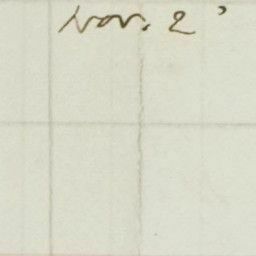 Nov. 2'